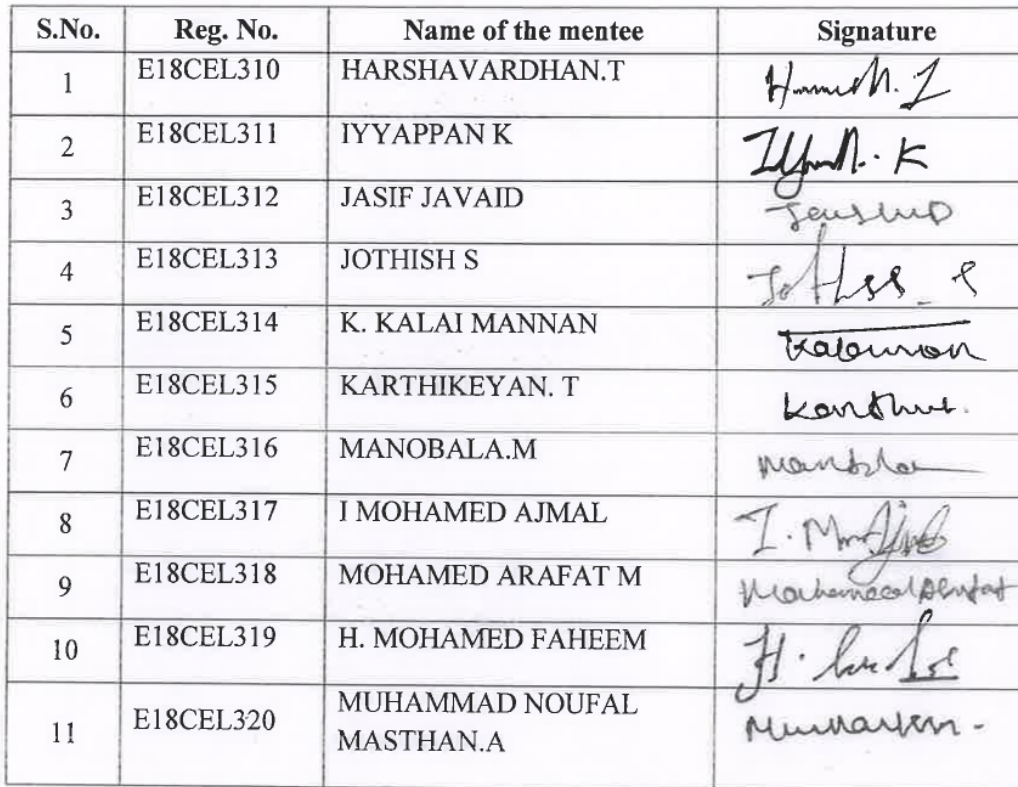 S.No. Reg. No. Name of the mentee Signature
1 E18CEL310 HARSHAVARDHAN.T
2 E18CEL311 IYYAPPAN K K
3 E18CEL312 JASIF JAVAID
4 E18CEL313 JOTHISH S
5 E18CEL314 K. KALAI MANNAN
6 E18CEL315 KARTHIKEYAN. T
7 E18CEL316 MANOBALA.M
8 E18CEL317 I MOHAMED AJMAL
9 E18CEL318 MOHAMED ARAFAT M
10 E18CEL319 H. MOHAMED FAHEEM
11 E18CEL320 MUHAMMAD NOUFAL
MASTHAN.A